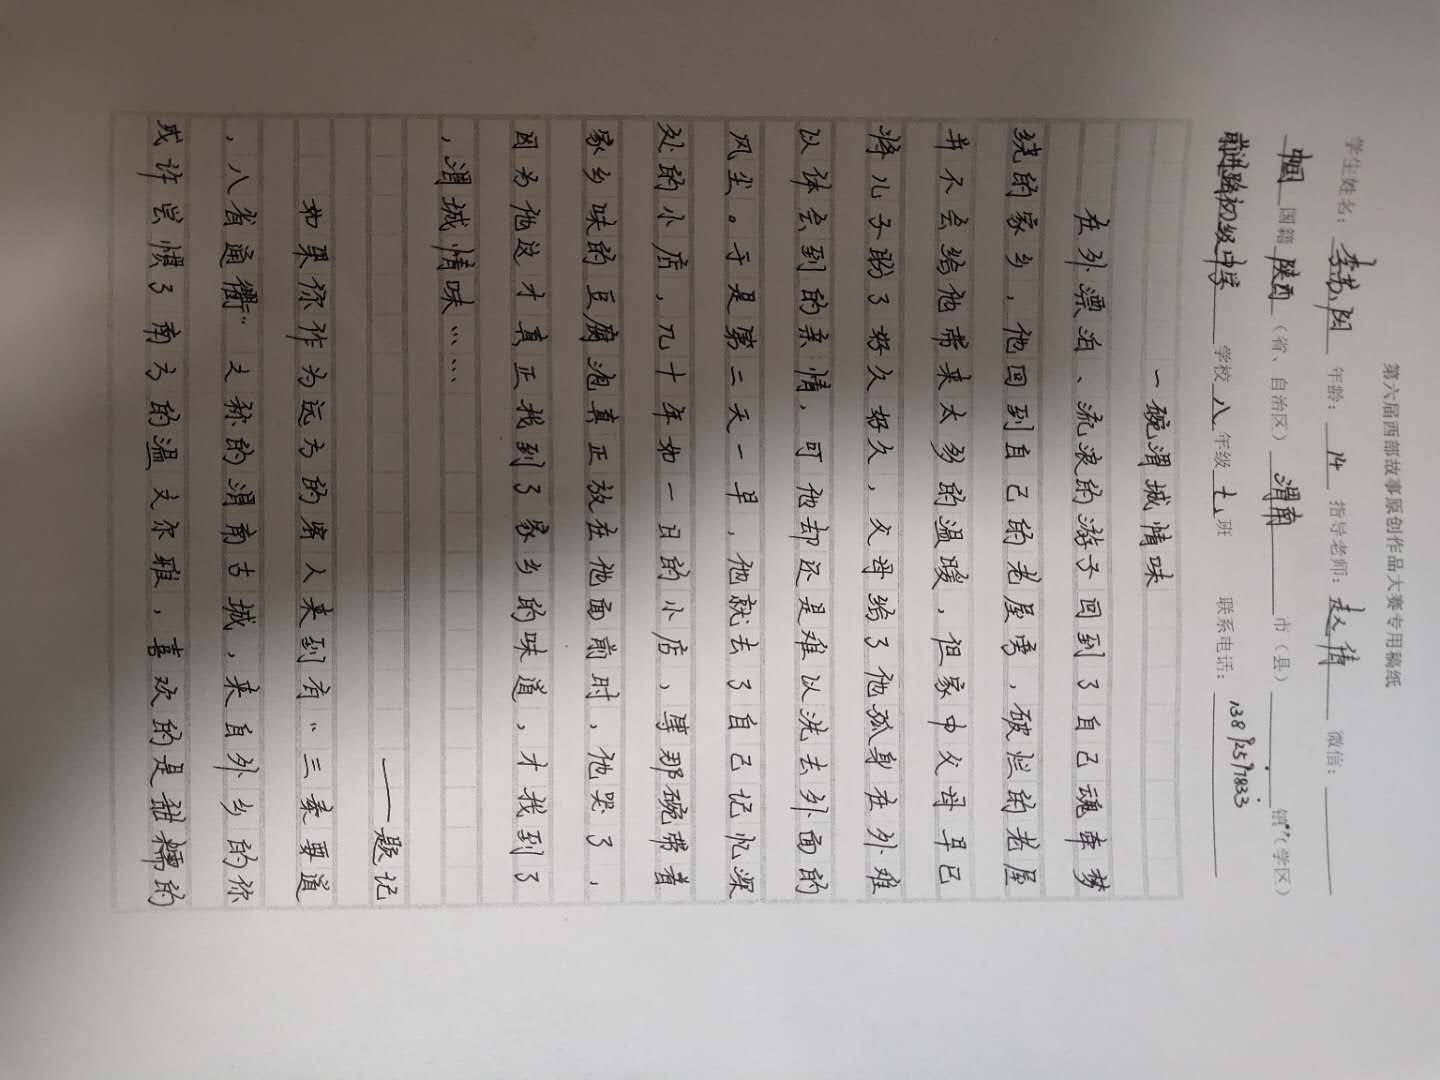 第六届西部故事原创作品大赛专用稿纸
学生姓名：李苏阳 年龄：14 指导老师：赵倩 微信：
中国 国籍 陕西（省、自治区） 渭南 市（县） 镇（学区）
前进路初级中学 学校 八 年级 七 班 联系电话：
一碗渭城情味
在外漂泊、流浪的游子回到了自己魂牵梦
绕的家乡，他回到自己的老屋旁，破烂的老屋
并不会给他带来太多的温暖，但家中父母早已
将儿子盼了好久好久，父母给了他孤身在外难
以体会到的亲情，可他却还是难以洗去外面的
风尘。于是第二天一早，他就去了自己记忆深
处的小店，几十年如一日的小店，等那碗带着
家乡味的豆腐泡真正放在他面前时，他哭了，
因为他这才真正找到了家乡的味道，才找到了
，渭城情味……
——题记
如果你作为远方的客人来到有“三秦要道
，八省通衢”之称的渭南古城，来自外乡的你
或许尝惯了南方的温文尔雅，喜欢的是甜糯的